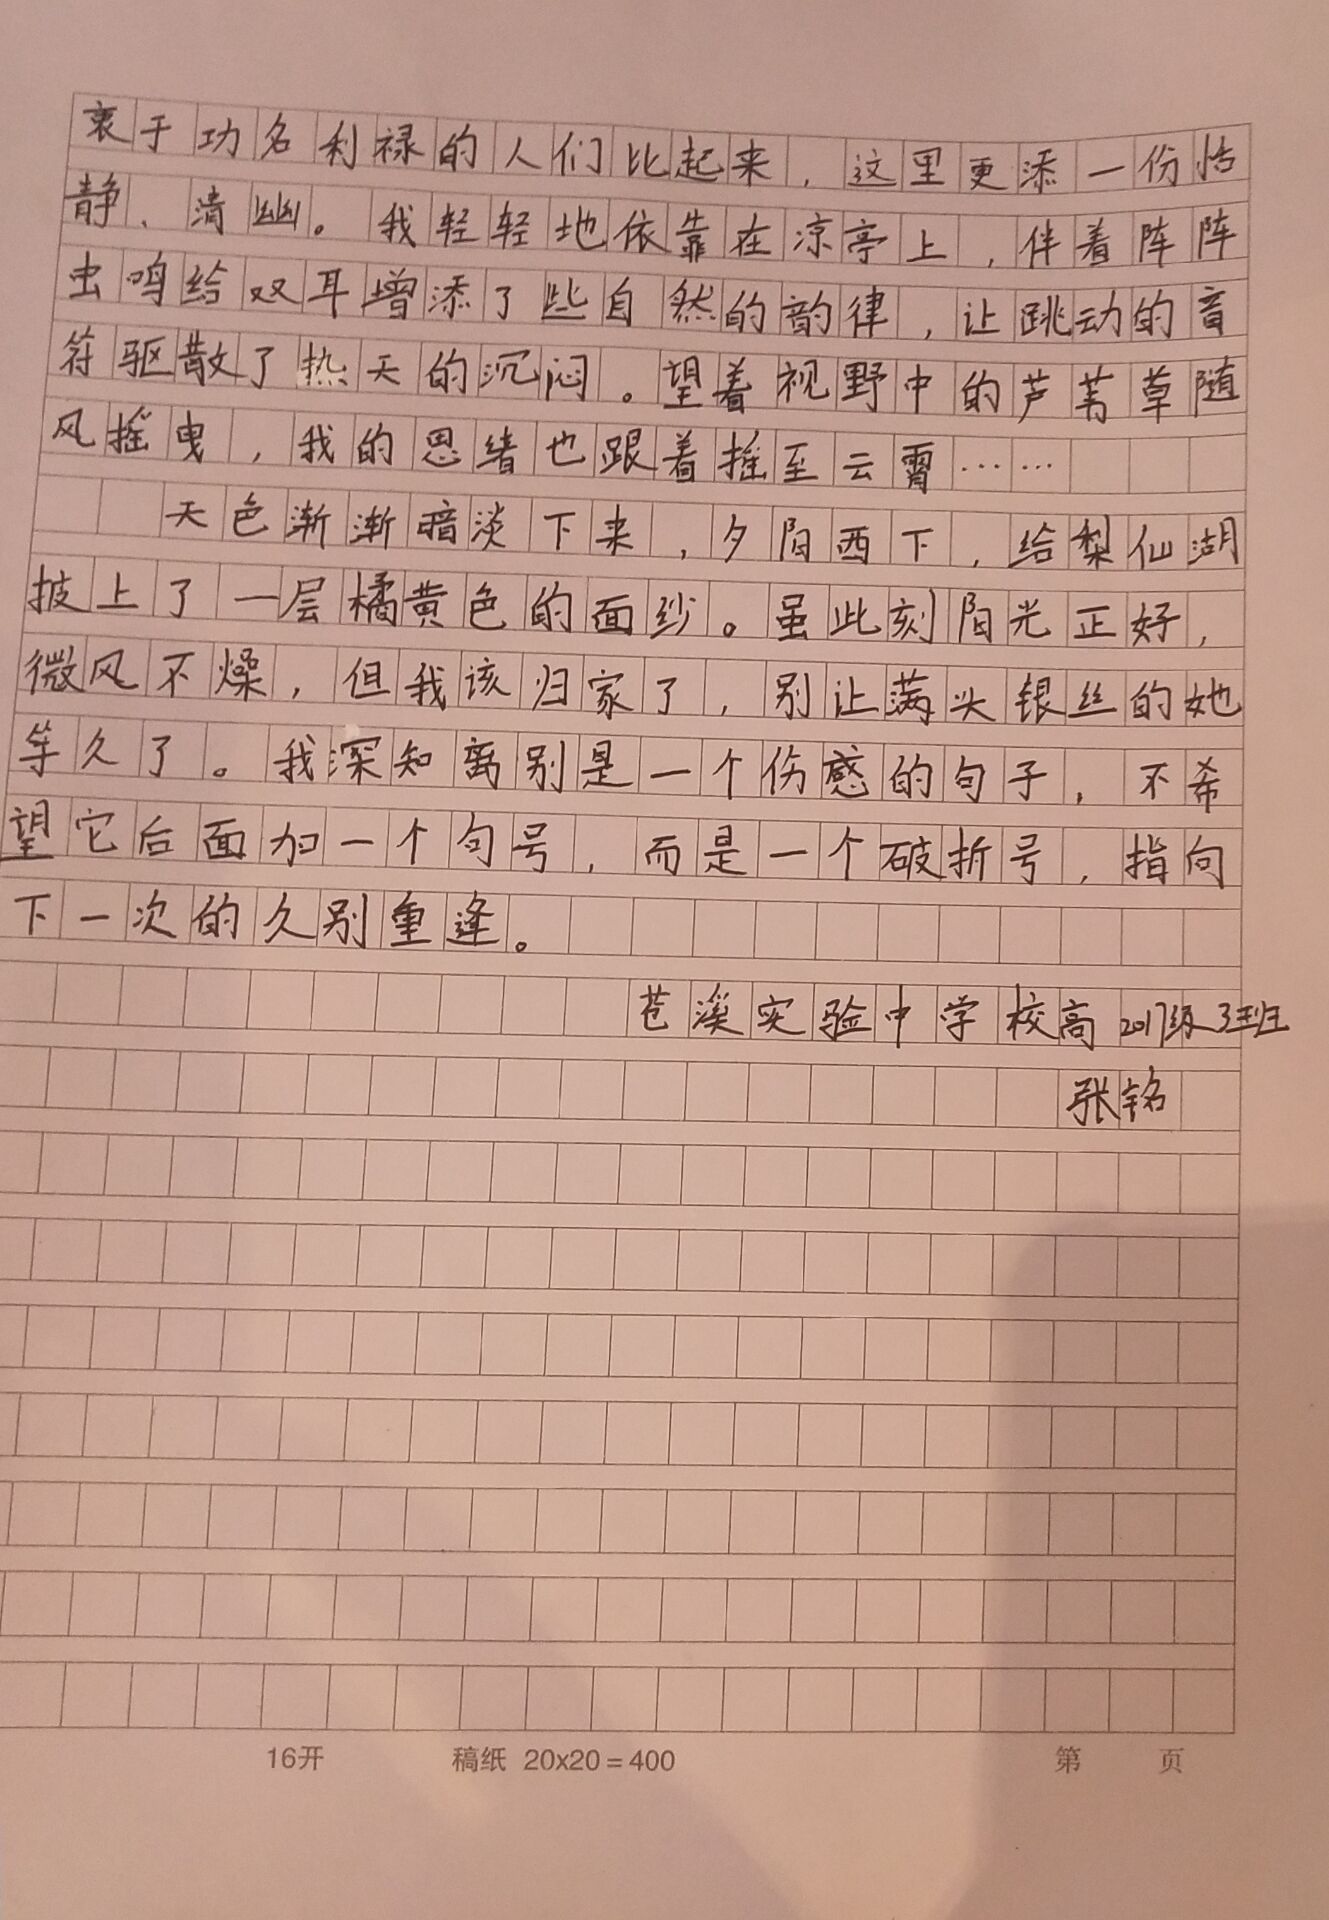 衷于功名利禄的人们比起来，这里更添一份恬
静、清幽。我轻轻地依靠在凉亭上，伴着阵阵
虫鸣给双耳增添了些自然的韵律，让跳动的音
符驱散了热天的沉闷。望着视野中的芦苇草随
风摇曳，我的思绪也跟着摇至云霄……
天色渐渐暗淡下来，夕阳西下，给梨仙湖
披上了一层橘黄色的面纱。虽此刻阳光正好，
微风不燥，但我该归家了，别让满头银丝的她
等久了。我深知离别是一个伤感的句子，不希
望它后面加一个句号，而是一个破折号，指向
下一次的久别重逢。
苍溪实验中学校高2017级3班
张铭
16开 稿纸 20x20=400 第 页